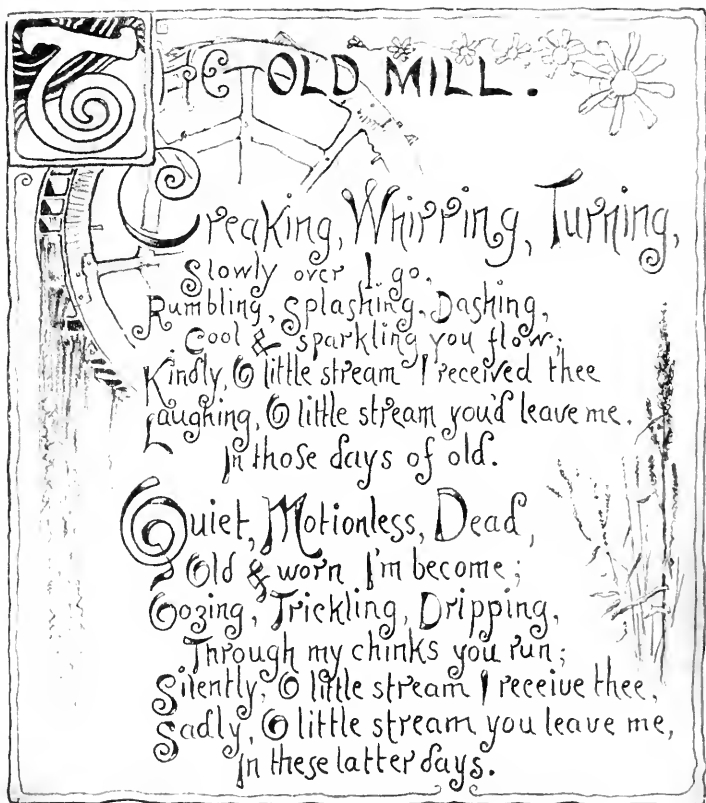 The OLD MILL.
Creaking, Whirring, Turning,
Slowly over I go,
Rumbling, Splashing, Dashing,
Cool & sparkling you flow;
Kindly, O little stream I received thee
Laughing, O little stream you'd leave me.
In those days of old.
Quiet, Motionless, Dead,
Old & worn I'm become;
Oozing, Trickling, Dripping,
Through my chinks you run;
Silently, O little stream I receive thee,
Sadly, O little stream you leave me,
In these latter days.